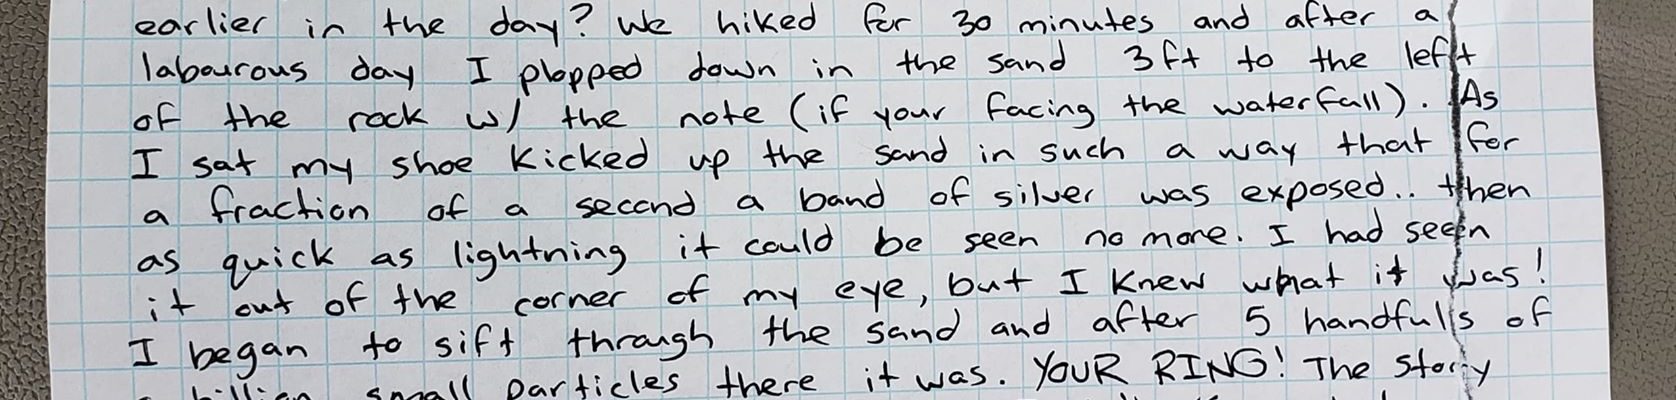 earlier in the day? We hiked for 30 minutes and after a
labourous day I plopped down in the sand 3ft to the left
of the rock w/ the note (if your facing the waterfall). As
I sat my shoe kicked up the sand in such a way that for
a fraction of a second a band of silver was exposed.. then
as quick as lightning it could be seen no more. I had seen
it out of the corner of my eye, but I knew what it was!
I began to sift through the sand and after 5 handfulls of
a billion small particles there it was. YOUR RING! The story